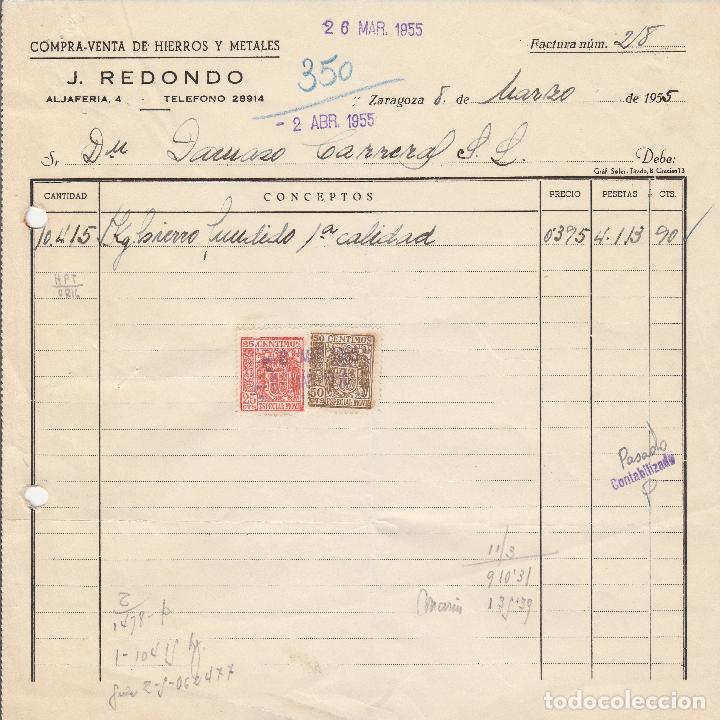 26 MAR. 1955
COMPRA-VENTA DE HIERROS Y METALES
Factura núm. 2/8
J. REDONDO
350
ALJAFERIA, 4 - TELEFONO 28914
Zaragoza 8 de Marzo de 1955
- 2 ABR. 1955
Sr. Damaso Carrera S. L. Debe:
Gráf. Soler.-Tendo. B. Gracián 13
CANTIDAD CONCEPTOS PRECIO PESETAS CTS.
10.415 Kg hierro fundido 1ª calidad 0395 4.113 90
25 CENTIMOS 50 CENTIMOS
25 CTS 50 CTS
ESPECIAL MOVIL ESPECIAL MOVIL
Pasado
Contabilizado
11/3
910'31
2
1478-p
1-10415
2-S-062477
todocoleccion